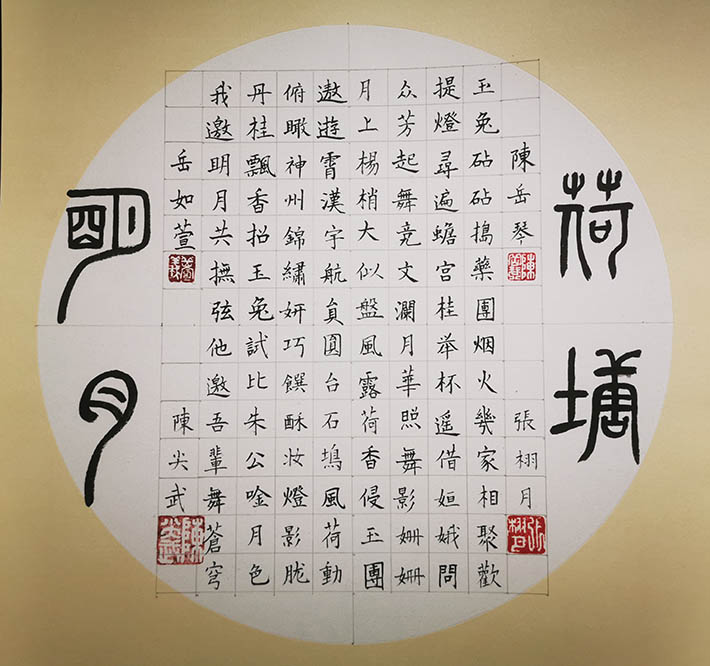 荷塘
陳岳琴 張栩月
玉兔砧砧搗藥團烟火幾家相聚歡
提燈尋遍蟾宮桂举杯遥借姮娥問
众芳起舞竞文瀾月華照舞影姍姍
月上楊梢大似盤風露荷香侵玉團
遨遊霄漢宇航員圓台石塢風荷動
俯瞰神州錦繡妍巧饌酥妝燈影朧
丹桂飄香招玉兔試比朱公唫月色
我邀明月共撫弦他邀吾輩舞蒼穹
岳如萱 陳尖武
明月